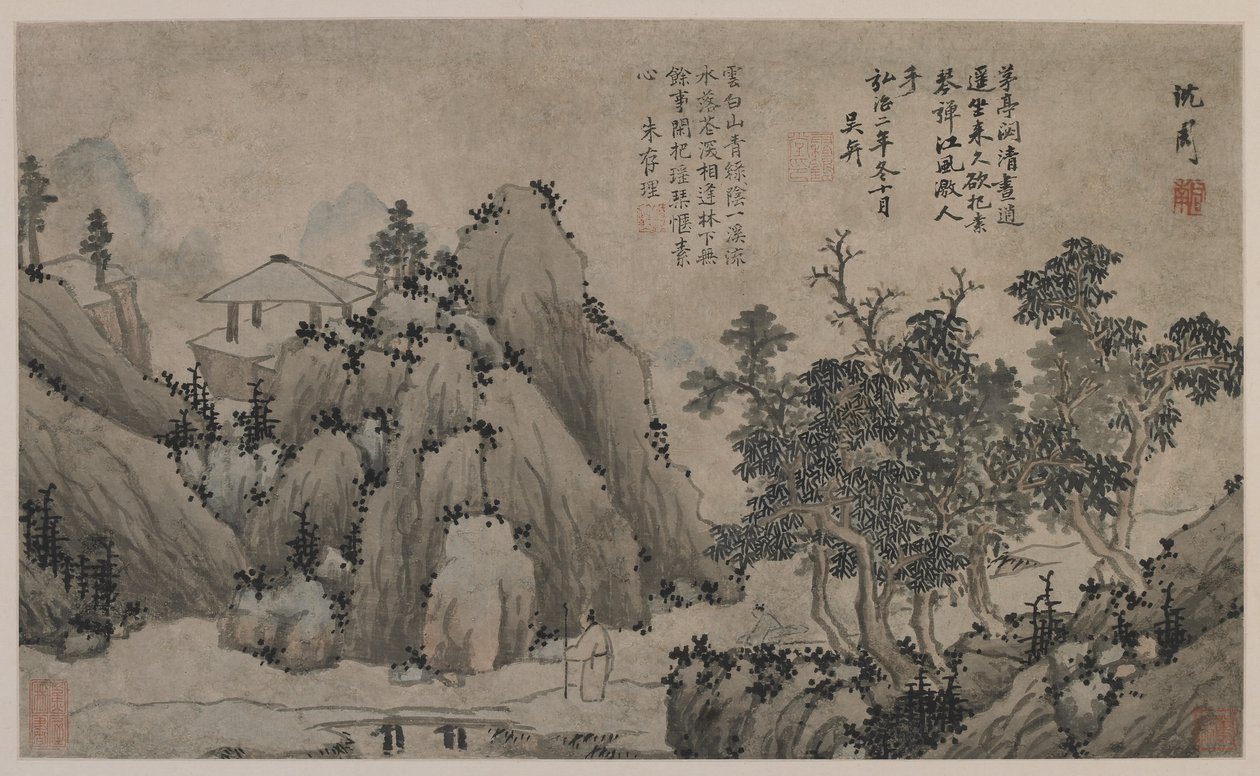 沈周
茅亭闃清晝逍
遥坐来久欲把素
琴彈江風激人
手
弘治二年冬十月
吳弈
雲白山青綠陰一溪流
水落花深相逢林下無
餘事閑把瑶琹愜素
心
朱存理